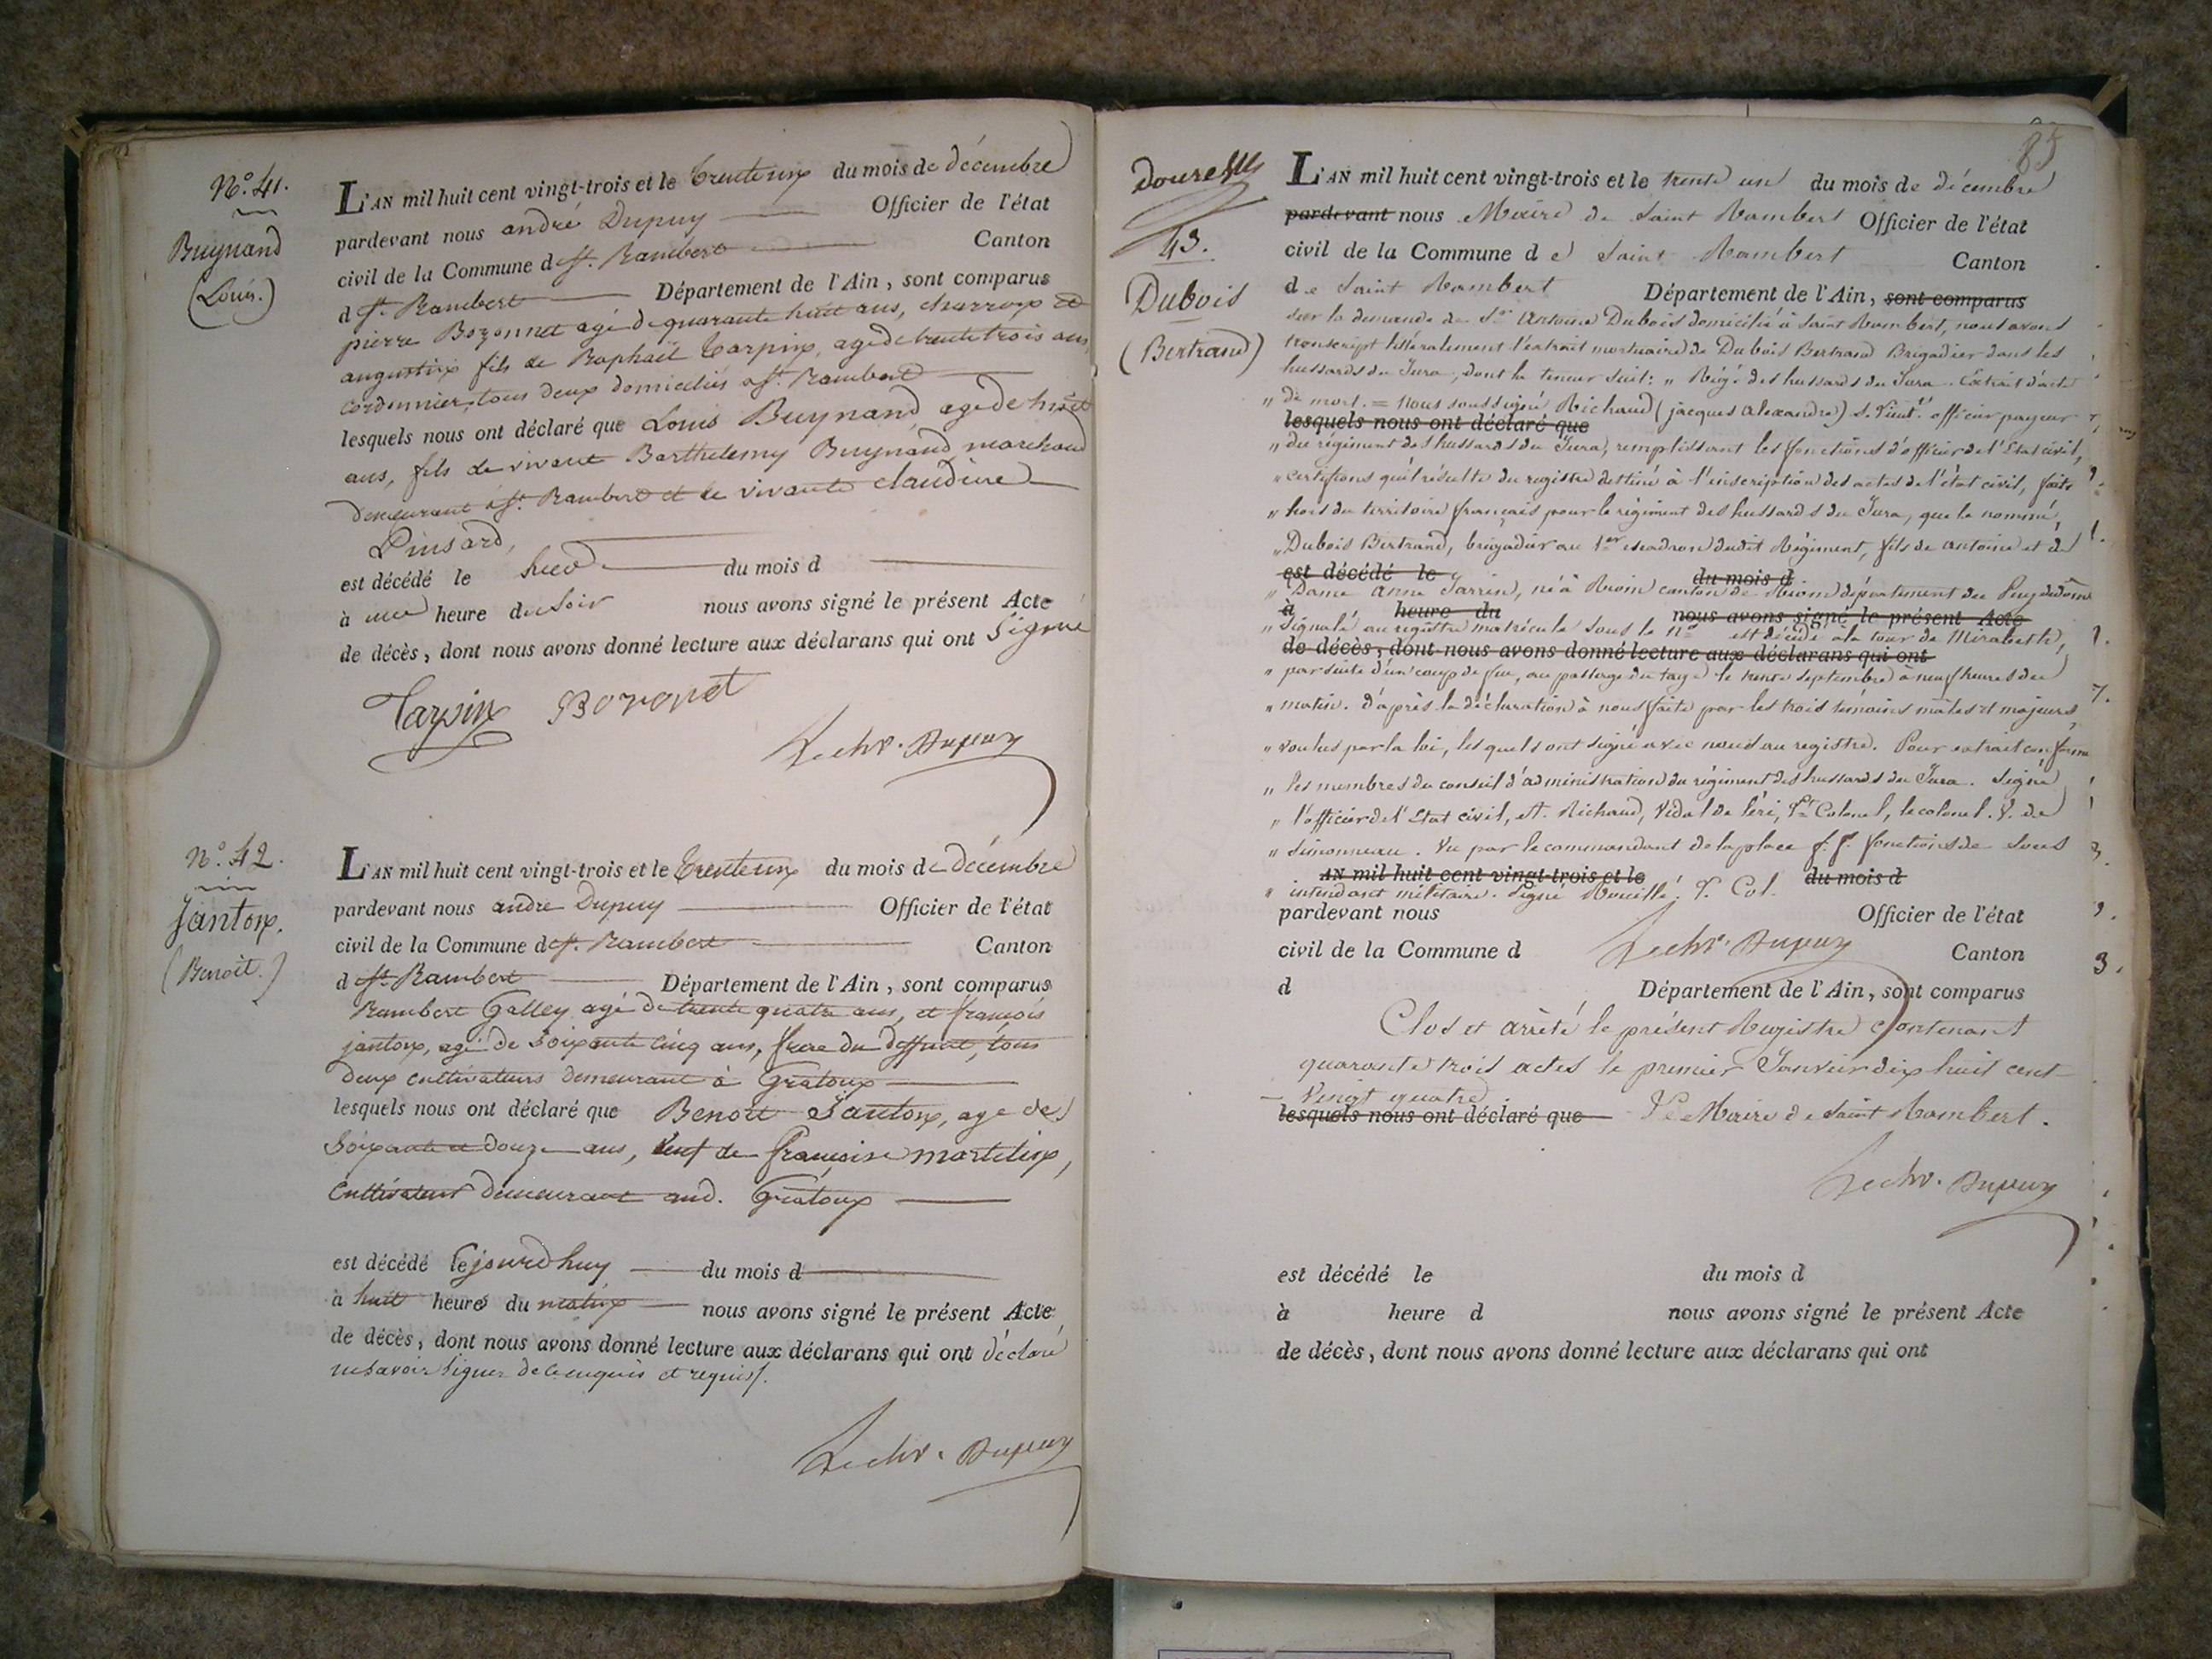 N.º 41.
Buynand
(Louis.)
L'AN mil huit cent vingt-trois et le trente un du mois de décembre
pardevant nous andré Dupuy Officier de l'état
civil de la Commune de St. Rambert Canton
d St. Rambert Département de l'Ain, sont comparus
pierre Bozonnet agé de quarante huit ans, charron et
augustin fils de Raphaël Tarpin, agé de trente trois ans,
cordonnier, tous deux domiciliés a St. Rambert
lesquels nous ont déclaré que Louis Buynand, age de huit
ans, fils de vivant Barthelemy Buynand marchand
demeurant a St. Rambert et de vivante claudine
Pinsard,
est décédé le hier du mois d
à une heure du soir nous avons signé le présent Acte
de décès, dont nous avons donné lecture aux déclarans qui ont signé
Tarpin Bozonet
Le chr. Dupuy
n.º 42.
Janton.
(Benoit.)
L'AN mil huit cent vingt-trois et le trente un du mois de décembre
pardevant nous andré Dupuy Officier de l'état
civil de la Commune de St. Rambert Canton
d St. Rambert Département de l'Ain, sont comparus
Rambert Galley agé de trente quatre ans, et françois
janton, agé de soixante cinq ans, frere du deffunt, tous
deux cultivateurs demeurant à Gratoux
lesquels nous ont déclaré que Benoit Janton, age de
soixante et douze ans, veuf de françoise martelin,
cultivateur demeurant aud. Gratoux
est décédé le jourdhuy du mois d
à huit heures du matin nous avons signé le présent Acte
de décès, dont nous avons donné lecture aux déclarans qui ont déclaré
ne savoir signer de ce enquis et requis.
Le chr. Dupuy
85
43.
Dubois
(Bertrand)
L'AN mil huit cent vingt-trois et le trente un du mois de décembre
pardevant nous Maire de Saint Rambert Officier de l'état
civil de la Commune d e Saint Rambert Canton
de Saint Rambert Département de l'Ain, sont comparus
sur la demande de Sr. Antoine Dubois domicilié à Saint Rambert, nous avons
transcript littéralement l'extrait mortuaire de Dubois Bertrand Brigadier dans les
hussards du Jura, dont la teneur suit: " Régt. des hussards du Jura. Extrait d'acte
" de mort. = Nous soussigné Richaud (jacques Alexandre) S. Lieut. officier payeur
lesquels nous ont déclaré que
" du régiment des hussards du Jura, remplissant les fonctions d'officier de l'Etat civil,
" certifions qu'il résulte du registre destiné à l'inscription des actes de l'état civil, faits
" hors du territoire français pour le régiment des hussards du Jura, que le nommé,
" Dubois Bertrand, brigadier au 1er escadron dudit Régiment, fils de Antoine et de
est décédé le du mois d
" Dame Anne Sarrin, né à Riom canton de Riom département du Puy de dôme
à heure du nous avons signé le présent Acte
" signalé au registre matricule sous le nº est décédé à la tour de Mirabelle,
de décès, dont nous avons donné lecture aux déclarans qui ont
" par suite d'un coup de feu, au passage du tage le trente septembre à neuf heures du
" matin. d'après la déclaration à nous faite par les trois témoins mâles et majeurs,
" voulus par la loi, lesquels ont signé avec nous au registre. Pour extrait conforme
" les membres du conseil d'administration du régiment des hussards du Jura. Signé
" l'officier de l'Etat civil, A. Richaud, Vidal de Léri, Lt Colonel, le colonel. V. de
" Simonneau. Vu par le commandant de la place f. f. fonctions de sous
AN mil huit cent vingt-trois et le du mois d
" intendant militaire. Signé Lt Col.
pardevant nous Officier de l'état
civil de la Commune d Le chr. Dupuy Canton
d Département de l'Ain, sont comparus
Clos et arrêté le présent Registre contenant
quarante trois actes le premier Janvier dix huit cent
vingt quatre
lesquels nous ont déclaré que Le Maire de Saint Rambert.
Le chr. Dupuy
est décédé le du mois d
à heure d nous avons signé le présent Acte
de décès, dont nous avons donné lecture aux déclarans qui ont